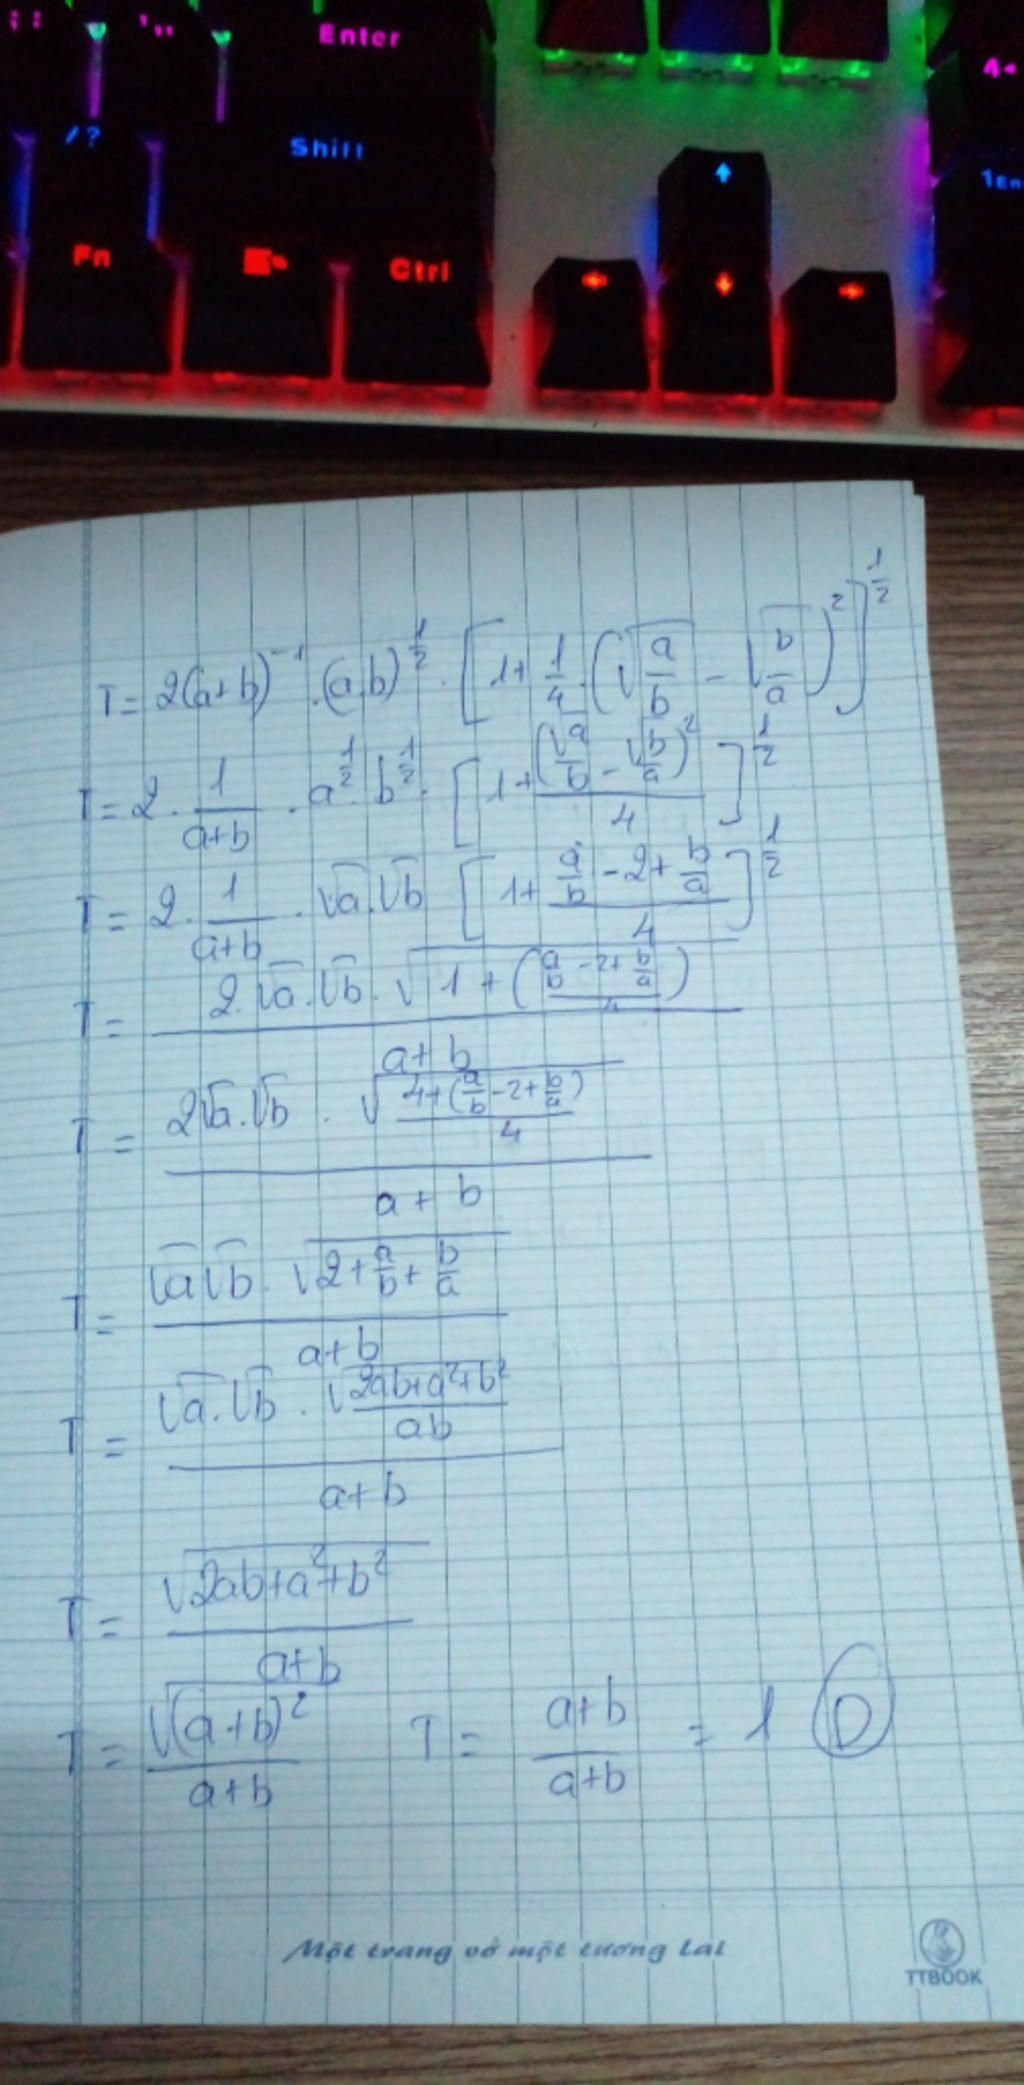 ; : ' " Enter
4◄
/ ? Shift ↑ 1 En
Fn Ctrl ← ↓ →
T = 2(a+b)^-1 . (a.b)^1/2 . [1 + 1/4 . (√(a/b) - √(b/a))^2]^1/2
T = 2 . 1/(a+b) . a^1/2 . b^1/2 . [1 + (√a/b - √b/a)^2/4]^1/2
T = 2 . 1/(a+b) . √a . √b [1 + (a/b - 2 + b/a)/4]^1/2
T = (2 . √a . √b . √(1 + ((a/b - 2 + b/a)/4)))/(a+b)
T = (2√a . √b . √((4 + (a/b - 2 + b/a))/4))/(a+b)
T = (√a √b . √(2 + a/b + b/a))/(a+b)
T = (√a . √b . √((2ab + a² + b²)/ab))/(a+b)
T = √(2ab + a² + b²)/(a+b)
T = √((a+b)²)/(a+b) T = (a+b)/(a+b) = 1 D
Một trang vở một tương lai
TTBOOK